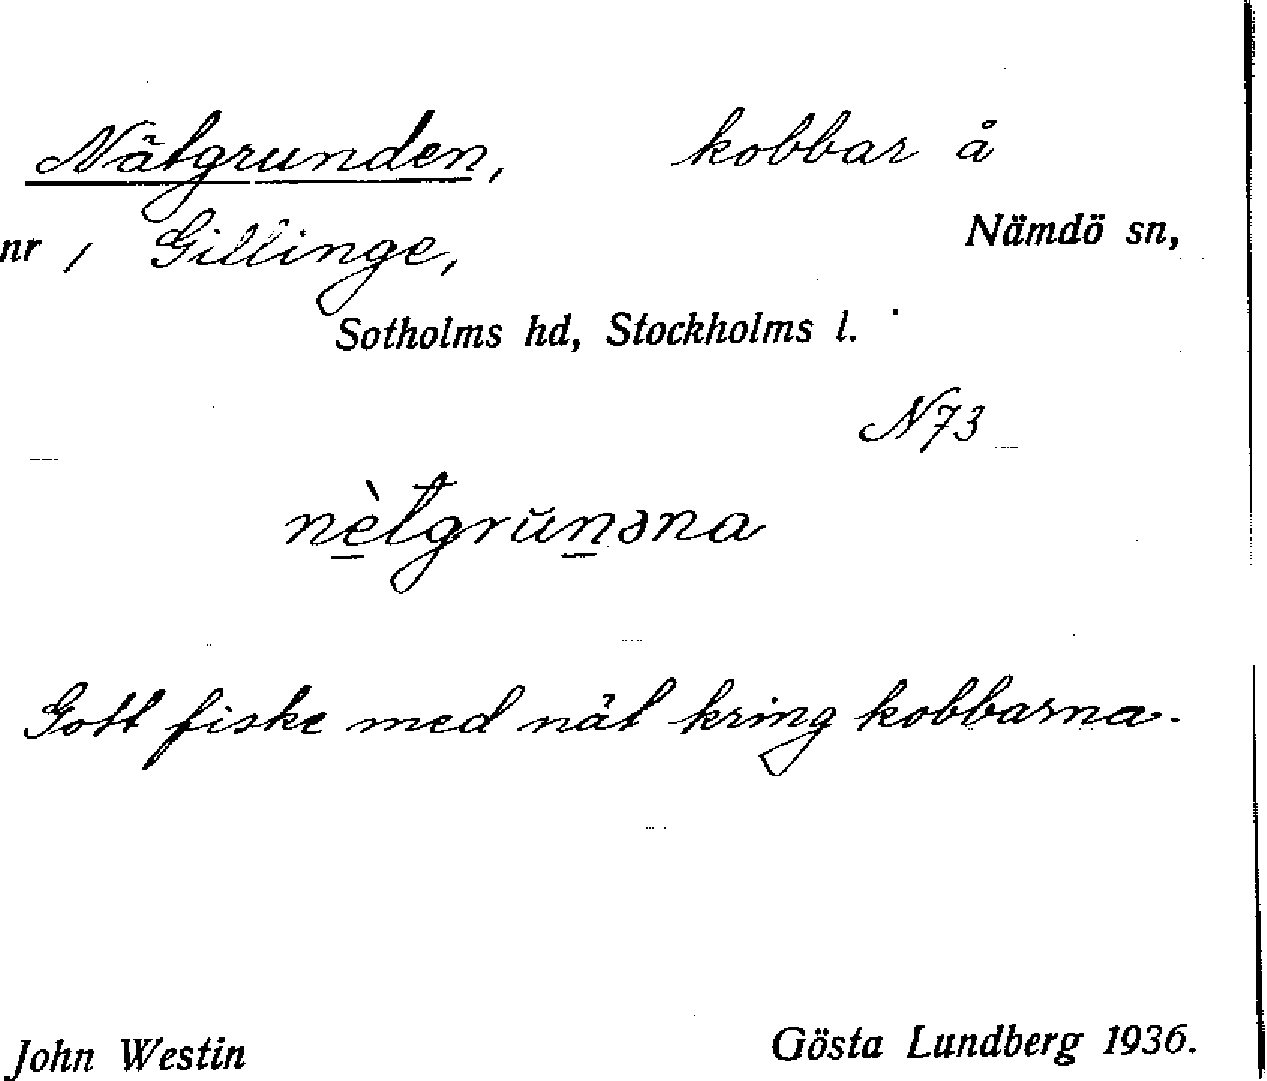 Nätgrunden, kobbar å
nr 1 Gillinge, Nämdö sn,
Sotholms hd, Stockholms l.
N73
nè̠tgrŭn̠əna
Gott fiske med nät kring kobbarna.
John Westin Gösta Lundberg 1936.